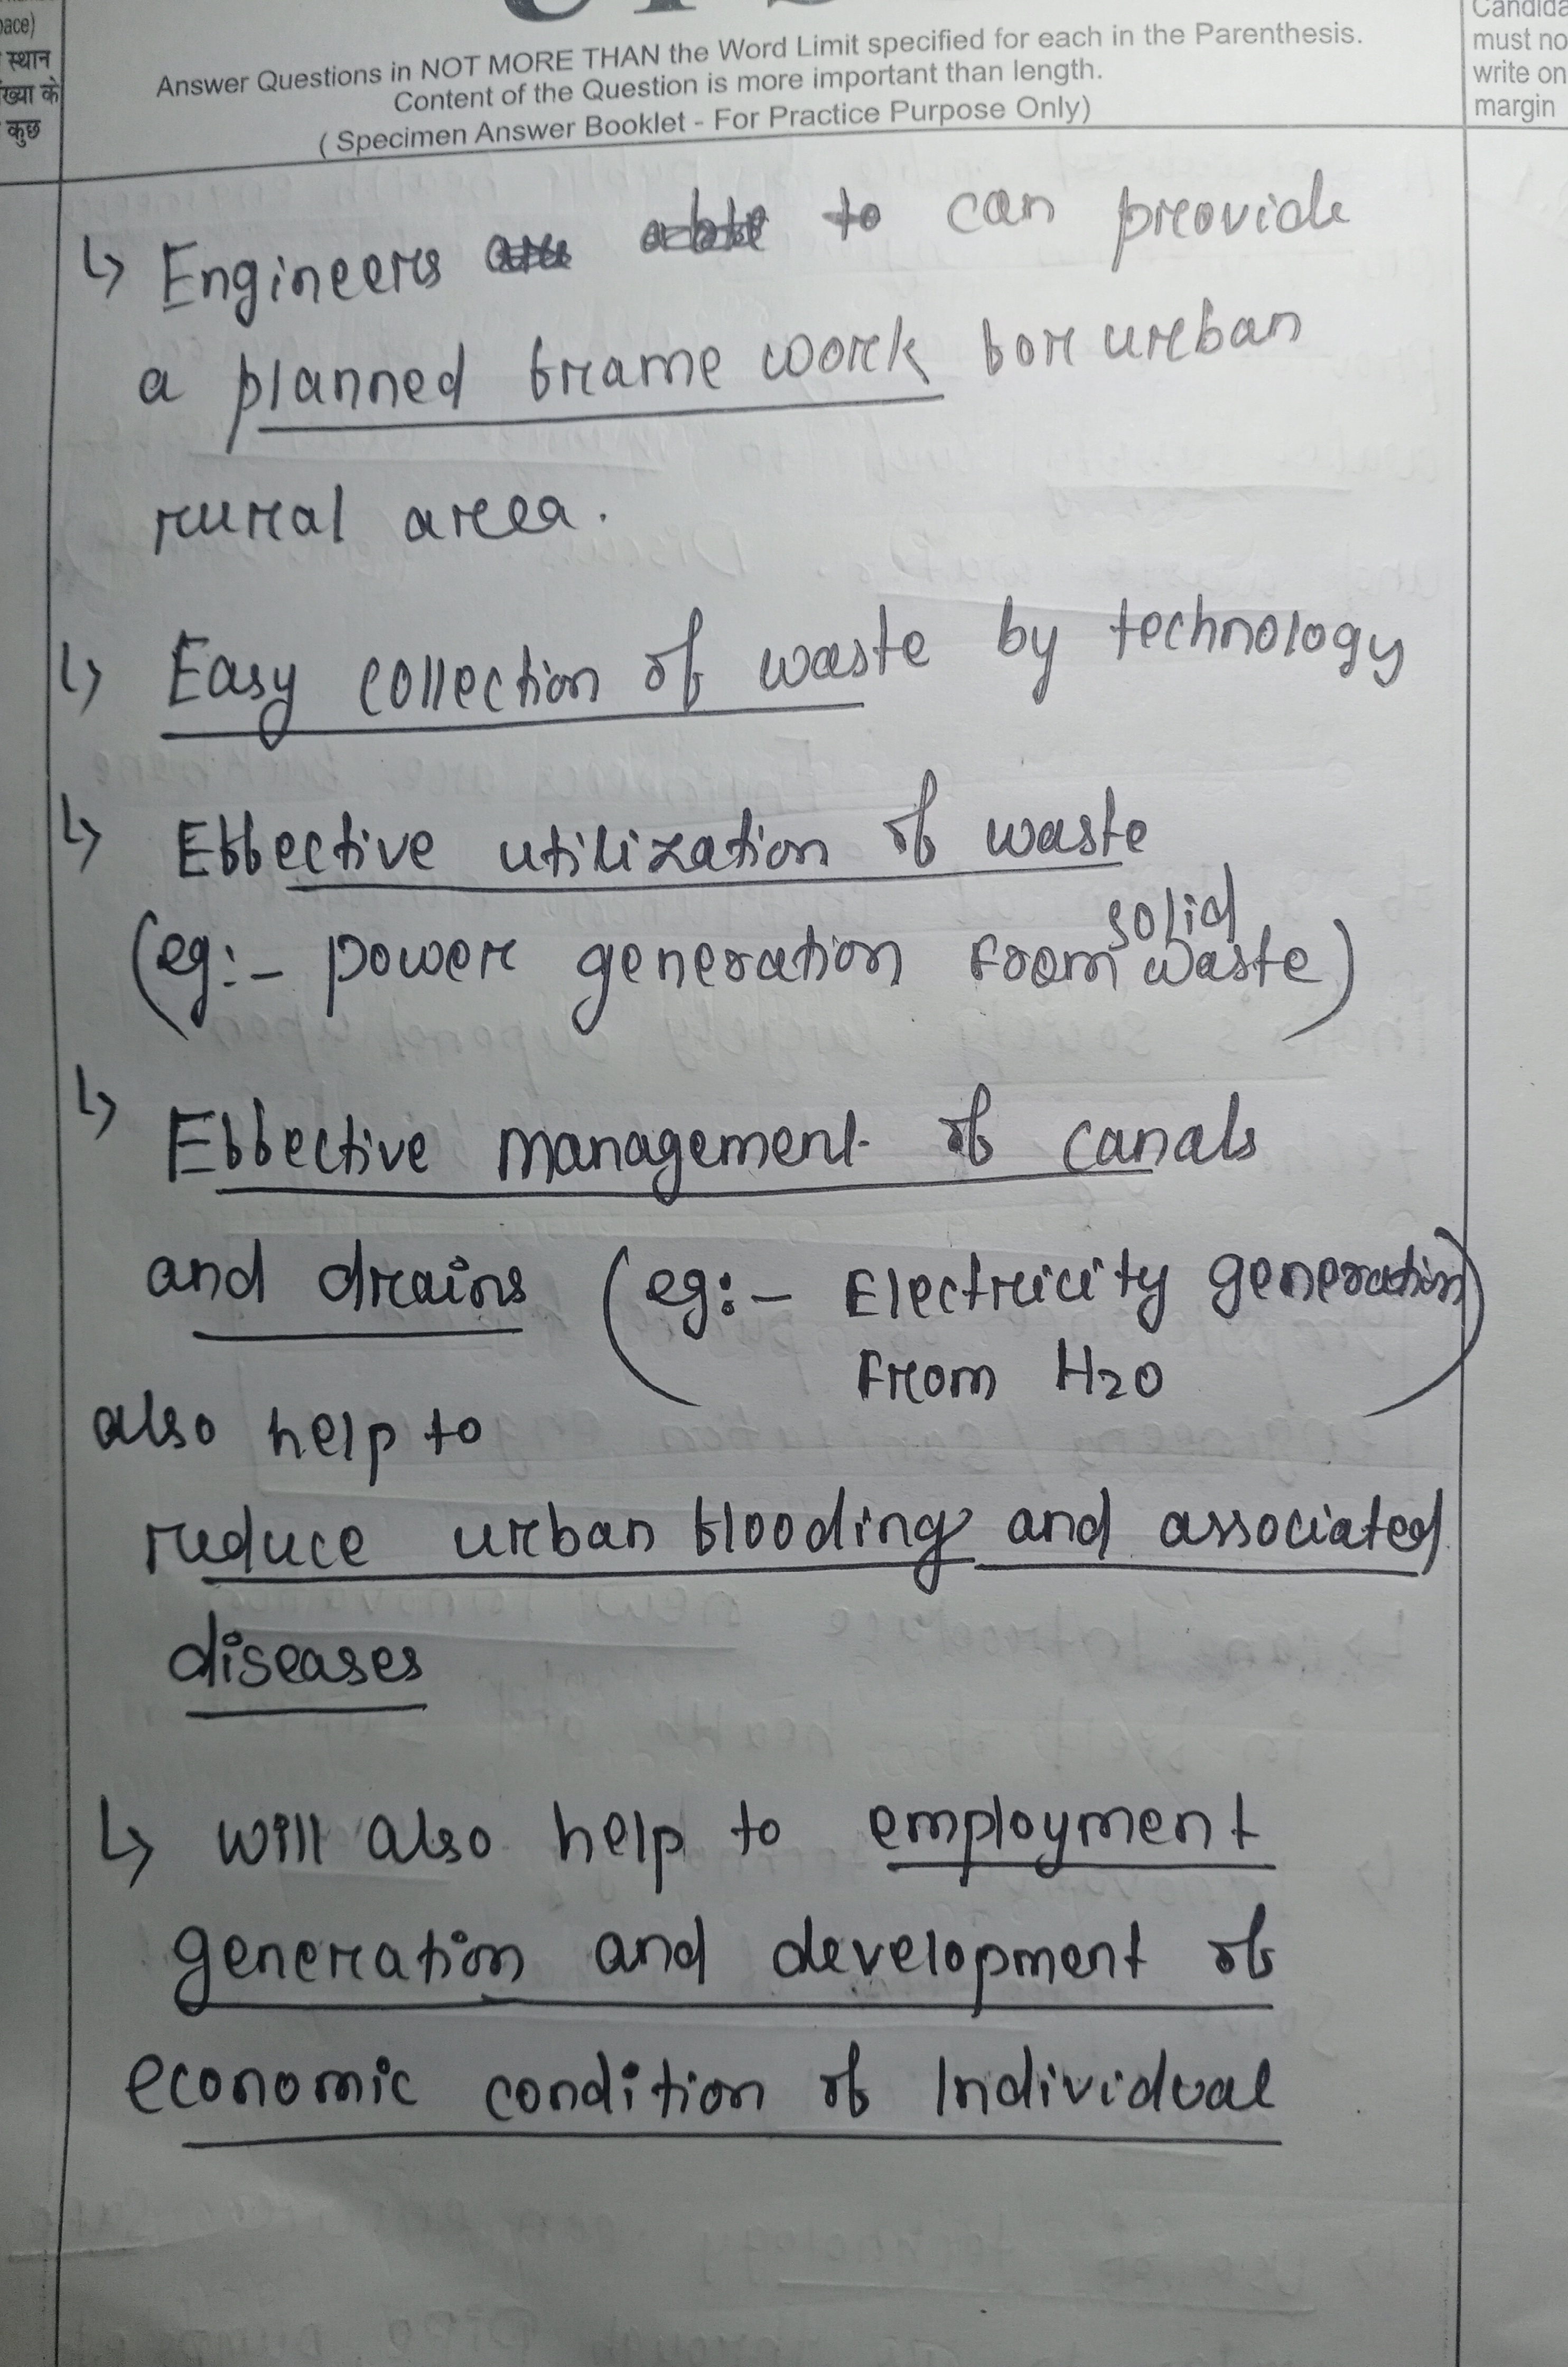 pace)
स्थान
ख्या के
कुछ
Answer Questions in NOT MORE THAN the Word Limit specified for each in the Parenthesis.
Content of the Question is more important than length.
( Specimen Answer Booklet - For Practice Purpose Only)
Candida
must no
write on
margin
↳ Engineers are able to can provide
a planned frame work for urban
rural area.
↳ Easy collection of waste by technology
↳ Effective utilization of waste
(eg:- power generation from solid waste)
↳ Effective management of canals
and drains (eg:- Electricity generation
From H2O
)
also help to
reduce urban flooding and associated
diseases
↳ will also help to employment
generation and development of
economic condition of Individual